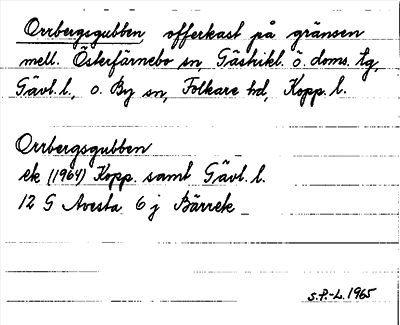 Orrbergsgubben, offerkast på gränsen
mell. Österfärnebo sn, Gästrikl. ö. doms. tg,
Gävl. l., o. By sn, Folkare hd, Kopp. l.
Orrbergsgubben
ek (1964) Kopp. samt Gävl. l.
12 G Avesta 6 j Bärrek
S.P.-L. 1965